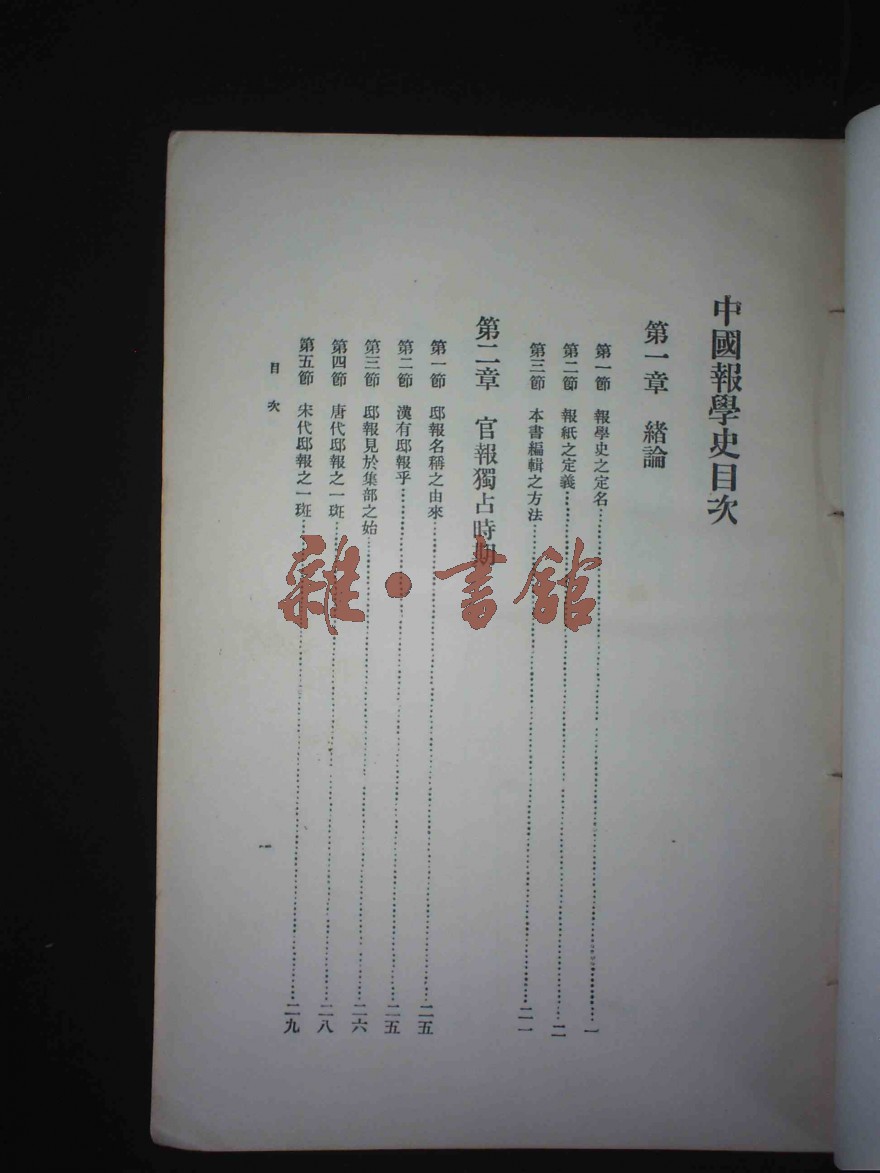 中國報學史目次
第一章　緒論
第一節　報學史之定名……一
第二節　報紙之定義……二
第三節　本書編輯之方法……二一
第二章　官報獨占時期
第一節　邸報名稱之由來……二五
第二節　漢有邸報乎……二五
第三節　邸報見於集部之始……二六
第四節　唐代邸報之一斑……二八
第五節　宋代邸報之一斑……二九
目次
一
雜·書館